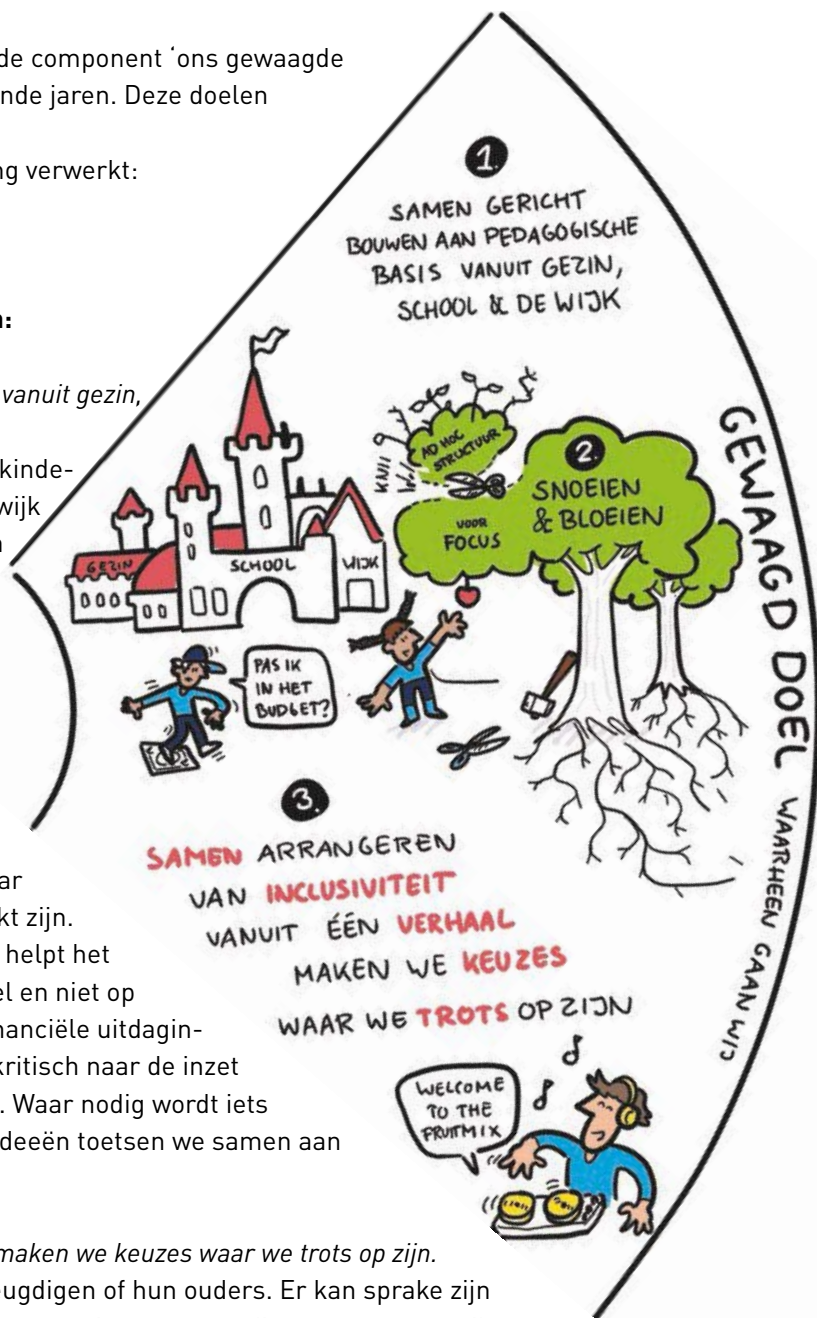 de component ‘ons gewaagde
nde jaren. Deze doelen
ng verwerkt:
:
vanuit gezin,
kinde-
wijk
ar
kt zijn.
helpt het
el en niet op
nanciële uitdagin-
kritisch naar de inzet
. Waar nodig wordt iets
deeën toetsen we samen aan
maken we keuzes waar we trots op zijn.
eugdigen of hun ouders. Er kan sprake zijn
1.
SAMEN GERICHT
BOUWEN AAN PEDAGOGISCHE
BASIS VANUIT GEZIN,
SCHOOL & DE WIJK
GEZIN
SCHOOL
WIJK
KNIP
AD HOC
STRUCTUUR
2.
SNOEIEN
& BLOEIEN
VOOR
FOCUS
PAS IK
IN HET
BUDGET?
3.
SAMEN ARRANGEREN
VAN INCLUSIVITEIT
VANUIT ÉÉN VERHAAL
MAKEN WE KEUZES
WAAR WE TROTS OP ZIJN
WELCOME
TO THE
FRUITMIX
GEWAAGD DOEL WAARHEEN GAAN WIJ